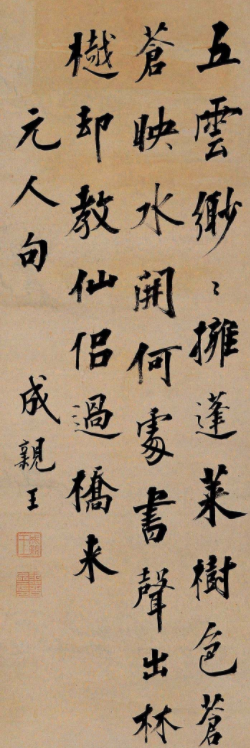 五雲緲〻擁蓬萊樹色蒼
蒼映水開何處書聲出林
樾却教仙侶過橋来
元人句
成親王